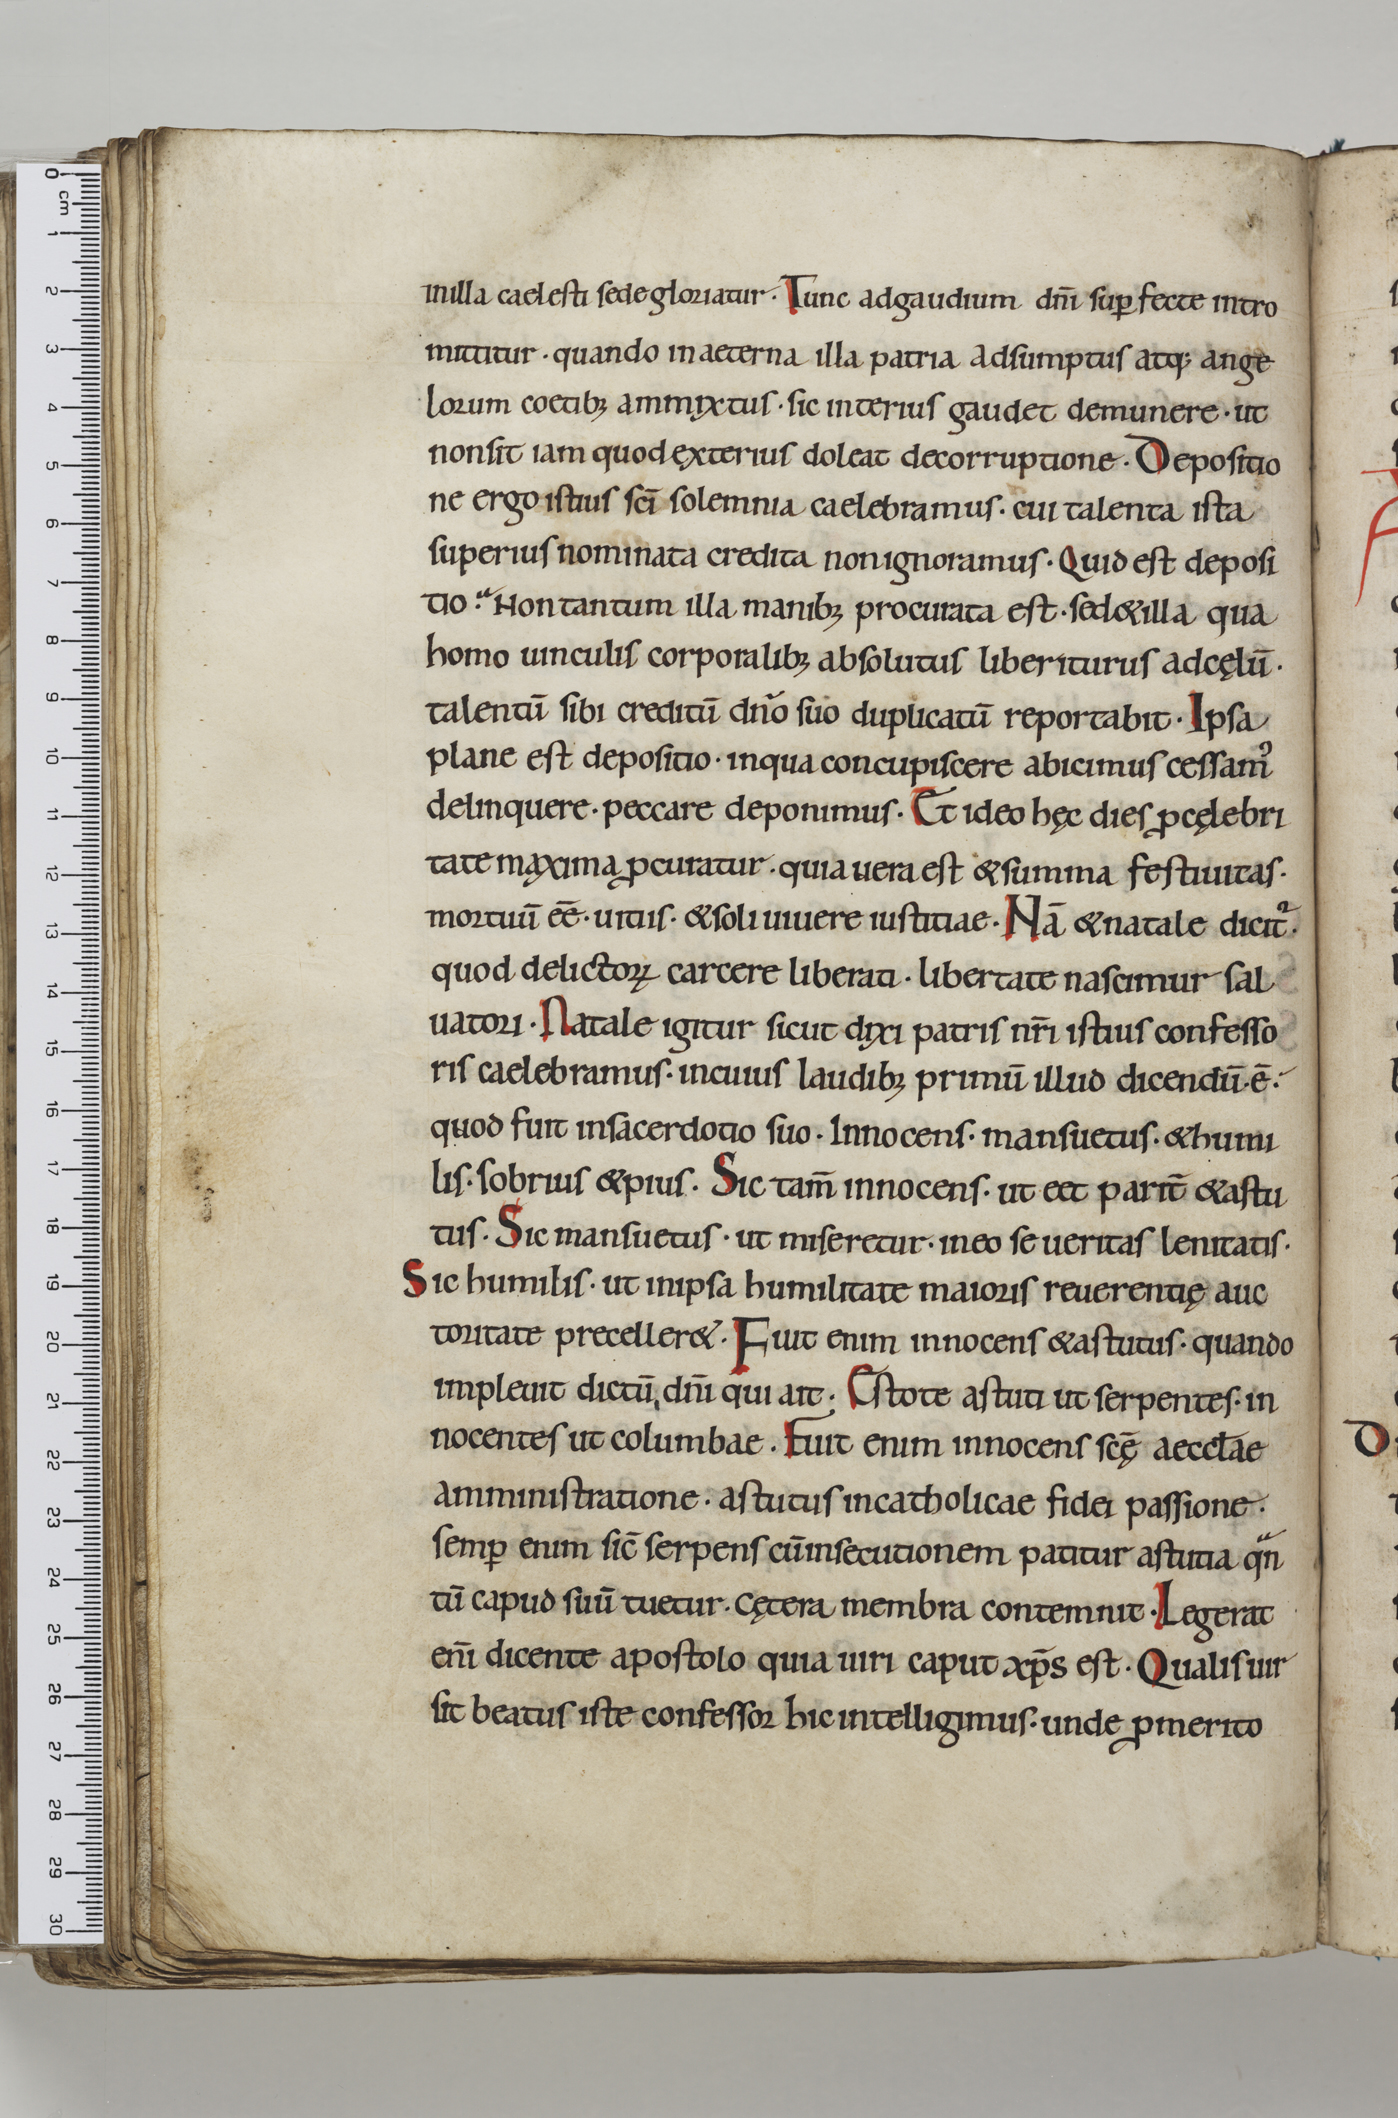 inilla caelesti sede gloriatur. Tunc adgaudium dn̄i sup̱fecte intro
mittitur. quando inaeterna illa patria adsumptus atq; ange
lorum coetib; ammixtus. sic interius gaudet demunere. ut
nonsit iam quod exterius doleat decorruptione. Depositio
ne ergo istius sc̄i solemnia caelebramus. cui talenta ista
superius nominata credita nonignoramus. Quid est deposi
tio? Non tantum illa manib; procurata est. sed&illa qua
homo uinculis corporalib; absolutus liber iturus adcęlū.
talentū sibi creditū dn̄o suo duplicatū reportabit. Ipsa
plane est depositio. inqua concupiscere abicimus cessam᾽
delinquere. peccare deponimus. Et ideo hęc dies ꝓcęlebri
tate maxima ꝓcuratur. quia uera est &summa festiuitas.
mortuū eē. uitiis. &soli uiuere iustitiae. Nā &natale dicit᷑.
quod delictoꝝ carcere liberati. libertate nascimur sal
uatori. Natale igitur sicut dixi patris nr̄i istius confesso
ris caelebramus. incuius laudib; primū illud dicendū.ē.
quod fuit insacerdotio suo. Innocens. mansuetus. &humi
lis. sobrius &pius. Sic tam̄ innocens. ut eet parit̄ &astu
tus. Sic mansuetus. ut miseretur. ineo seueritas lenitatis.
Sic humilis. ut inipsa humilitate maioris reuerentię auc
toritate preceller&. Fuit enim innocens &astutus. quando
impleuit dictū dn̄i qui ait. Estote astuti ut serpentes. in
nocentes ut columbae. Fuit enim innocens scę̄ aeccłae
amministratione. astutus incatholicae fidei passione.
semp̱ enim sic̄ serpens cūinsecutionem patitur astutia qn̄
tū capud suū tuetur. cętera membra contemnit. Legerat
en̄i dicente apostolo quia uiri caput xp̄s est. Qualis uir
sit beatus iste confessor hic intelligimus. unde ꝓmerito